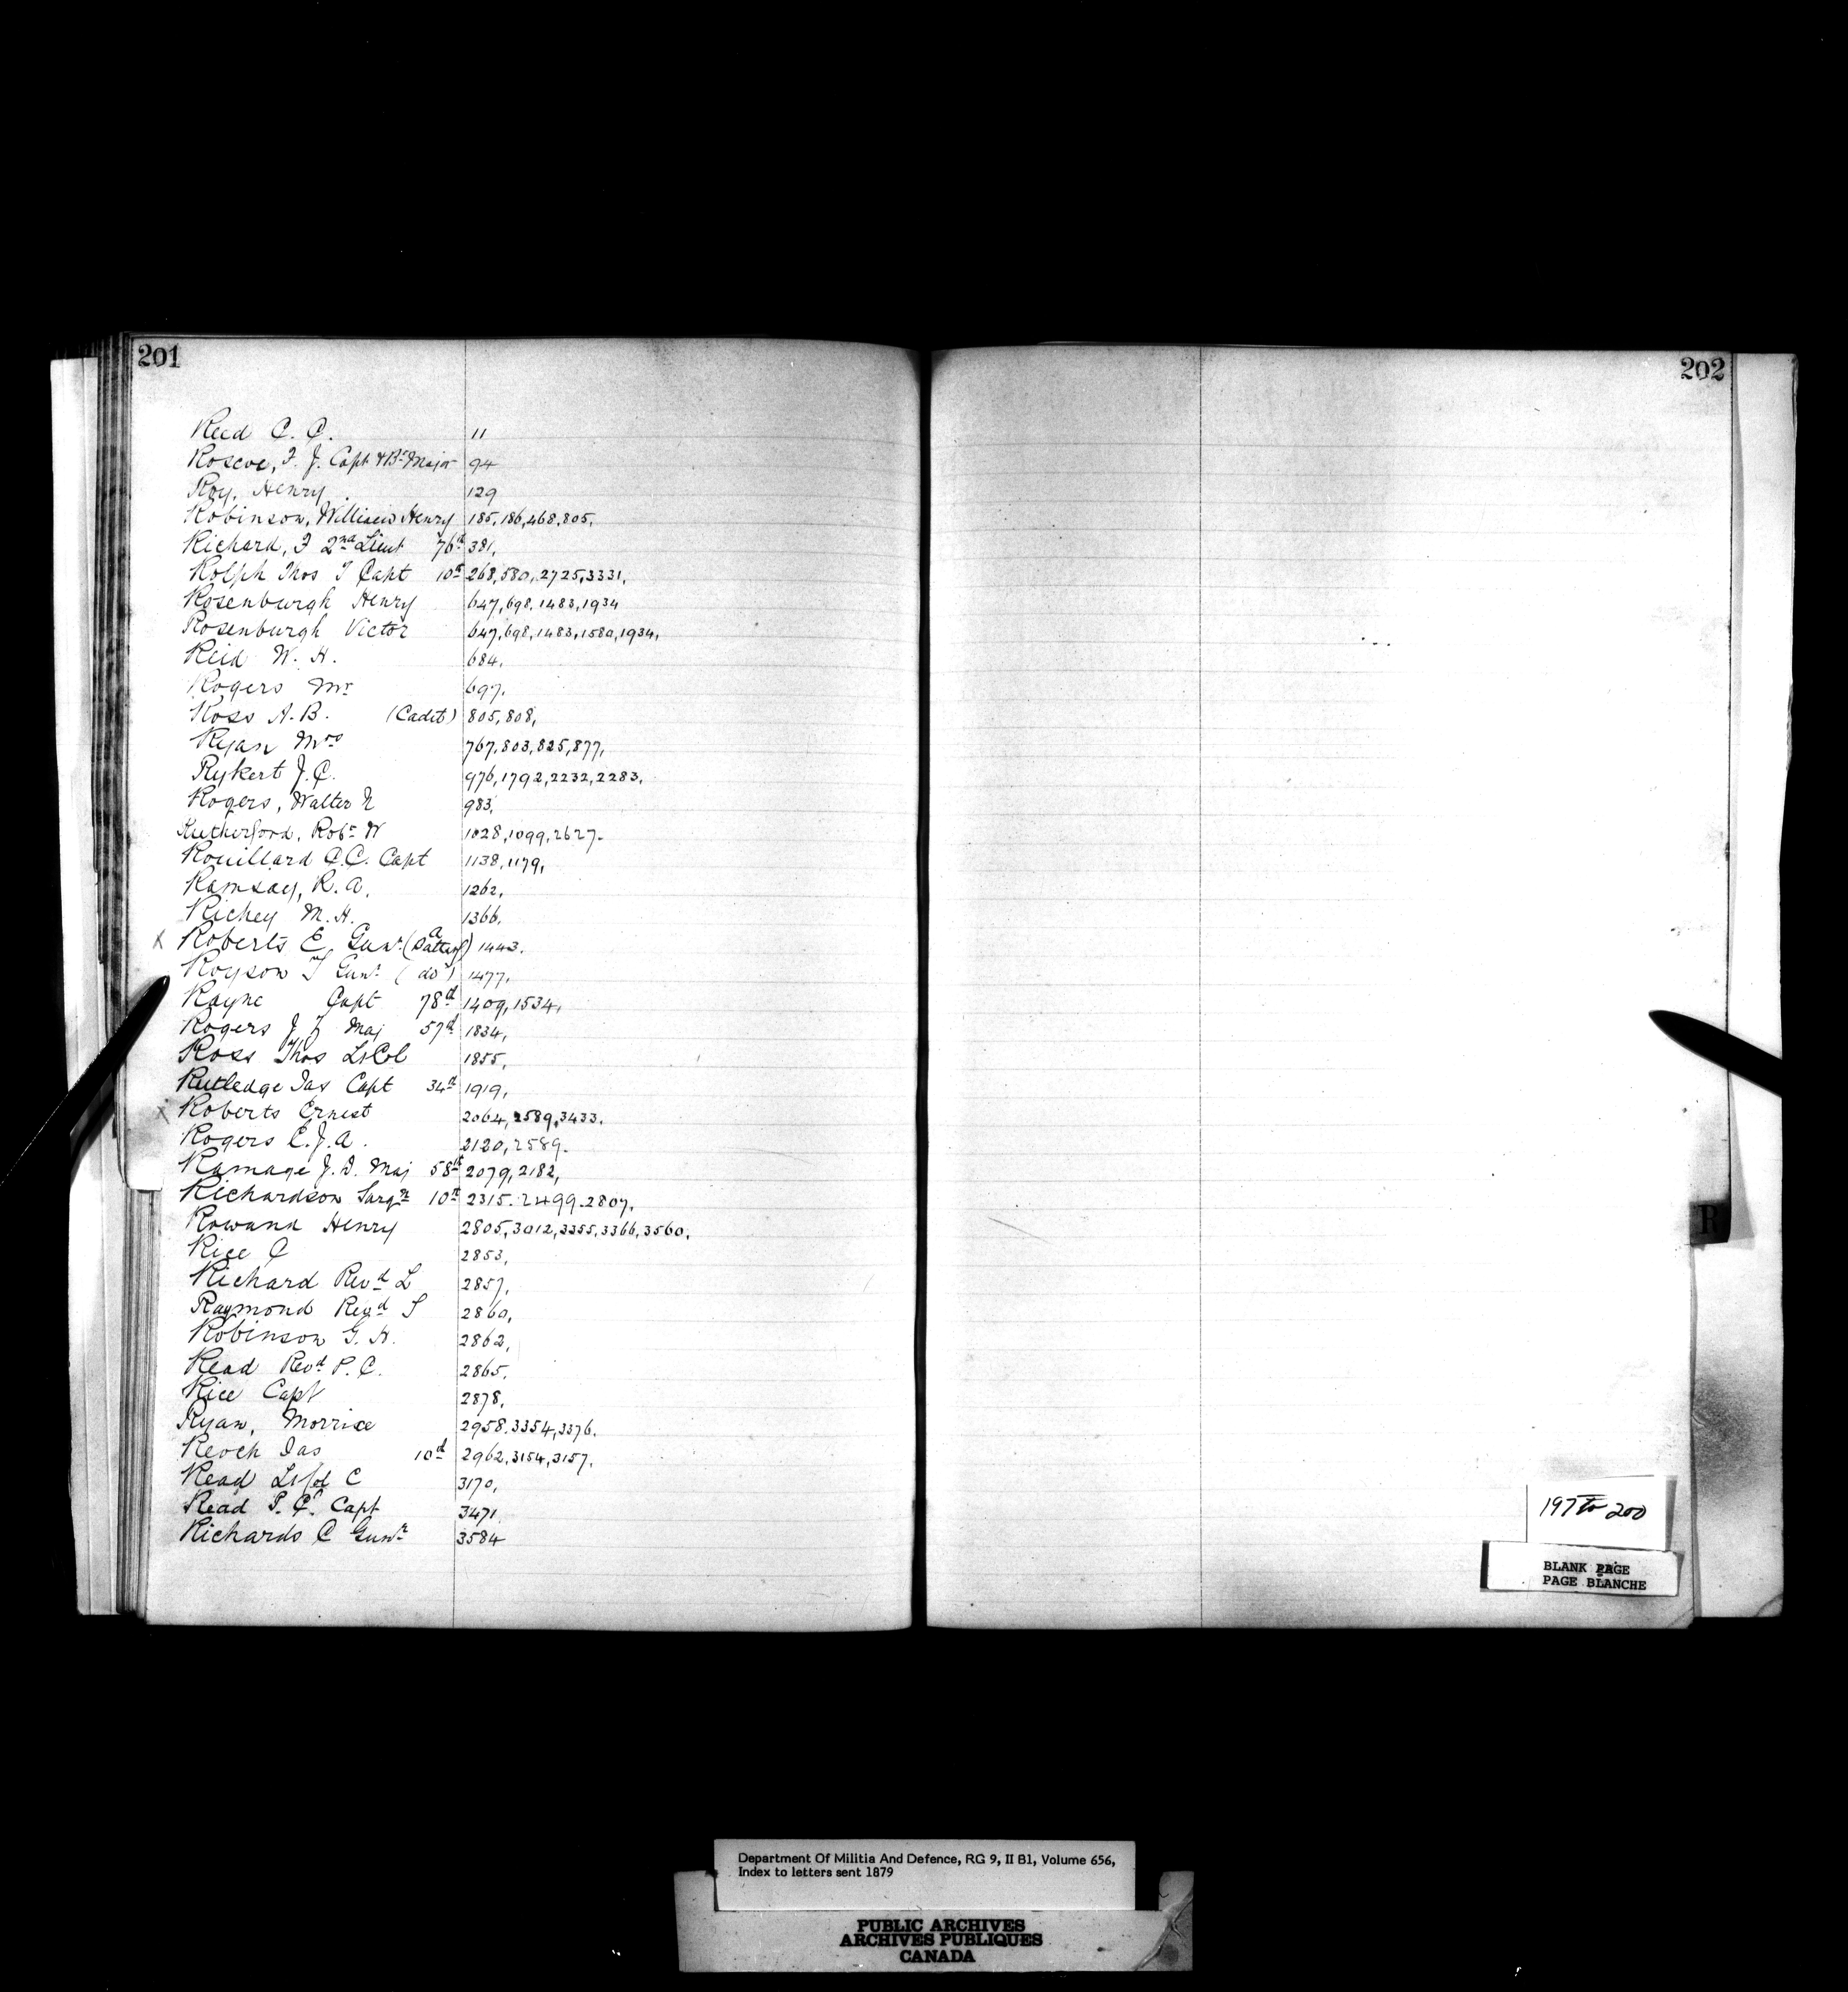 201
202
Reed C. C. 11
Roscoe, F. J. Capt & Bt Major 94
Roy, Henry 129
Robinson, William Henry 185, 186, 468, 805.
Richard, F 2nd Lieut 76th 381,
Rolph Thos T Capt 10th 268, 580, 2725, 3331,
Rosenburgh Henry 647, 698, 1483, 1934
Rosenburgh Victor 647, 698, 1483, 1580, 1934,
Reid W. H. 684,
Rogers Mr 697.
Ross A. B. (Cadet) 805, 808,
Ryan Mrs 767, 803, 825, 877,
Rykert J. C. 976, 1792, 2232, 2283,
Rogers, Walter N 983,
Rutherford, Robt W 1028, 1099, 2627.
Rouillard C. C. Capt 1138, 1179,
Ramsay, R. A. 1262,
Richey M. H. 1366.
X Roberts E Gunr (A Battery) 1443.
Royson T Gunr (do) 1477,
Rayne Capt 78th 1409, 1534,
Rogers J Z Maj 57th 1834,
Ross Thos Lt Col 1855,
Rutledge Jas Capt 34th 1919,
X Roberts Ernest 2064, 2589, 3433.
Rogers E. J. A. 2120, 2589.
Ramage J. D. Maj 58th 2079, 2182,
Richardson Surgn 10th 2315. 2499. 2807,
Rowand Henry 2805, 3012, 3355, 3366, 3560,
Rice C 2853,
Richard Revd L 2857,
Raymond Revd S 2860,
Robinson G. H. 2862,
Read Revd P. C. 2865,
Rice Capt 2878,
Ryan, Morrice 2958, 3354, 3376.
Reoch Jas 10th 2962, 3154, 3157,
Read Lt Col C 3170,
Read P. C. Capt 3471,
Richards C Gunr 3584
R
197 to 200
BLANK PAGE
PAGE BLANCHE
Department Of Militia And Defence, RG 9, II B1, Volume 656,
Index to letters sent 1879
PUBLIC ARCHIVES
ARCHIVES PUBLIQUES
CANADA